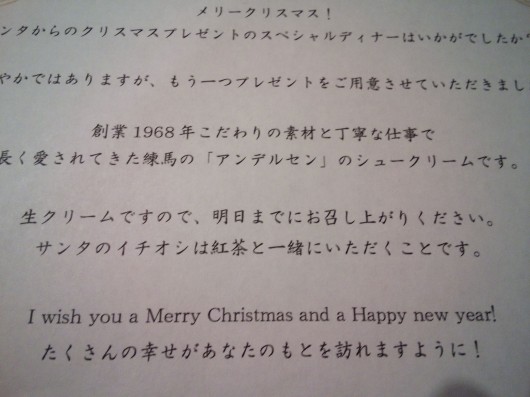 メリークリスマス！
ンタからのクリスマスプレゼントのスペシャルディナーはいかがでしたか
やかではありますが、もう一つプレゼントをご用意させていただきまし
創業1968年こだわりの素材と丁寧な仕事で
長く愛されてきた練馬の「アンデルセン」のシュークリームです。
生クリームですので、明日までにお召し上がりください。
サンタのイチオシは紅茶と一緒にいただくことです。
I wish you a Merry Christmas and a Happy new year!
たくさんの幸せがあなたのもとを訪れますように！